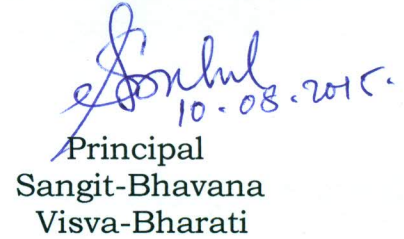 10.08.2015.
Principal
Sangit-Bhavana
Visva-Bharati